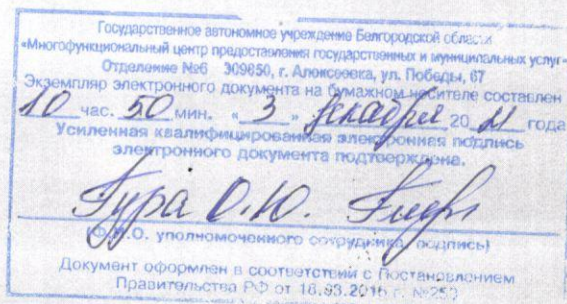 Государственное автономное учреждение Белгородской области
«Многофункциональный центр предоставления государственных и муниципальных услуг»
Отделение №6 309850, г. Алексеевка, ул. Победы, 67
Экземпляр электронного документа на бумажном носителе составлен
10 час. 50 мин. «3» декабря 2021 года
Усиленная квалифицированная электронная подпись
электронного документа подтверждена.
Гура О.Ю.
(Ф.И.О. уполномоченного сотрудника, подпись)
Документ оформлен в соответствии с Постановлением
Правительства РФ от 18.03.2015 г. №250